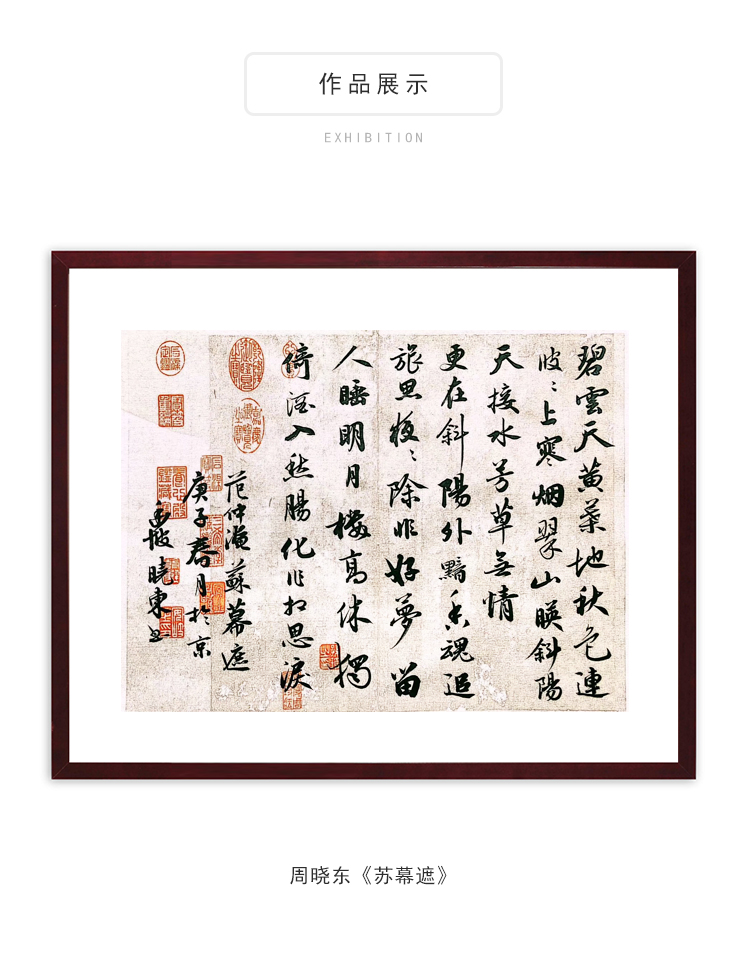 作品展示
EXHIBITION
碧雲天黄葉地秋色連
波〻上寒烟翠山暎斜陽
天接水芳草無情
更在斜陽外黯乡魂追
旅思夜〻除非好夢留
人睡明月樓高休獨
倚酒入愁腸化作相思淚
范仲淹蘇幕遮
庚子春月於京
曉東书
周晓东《苏幕遮》